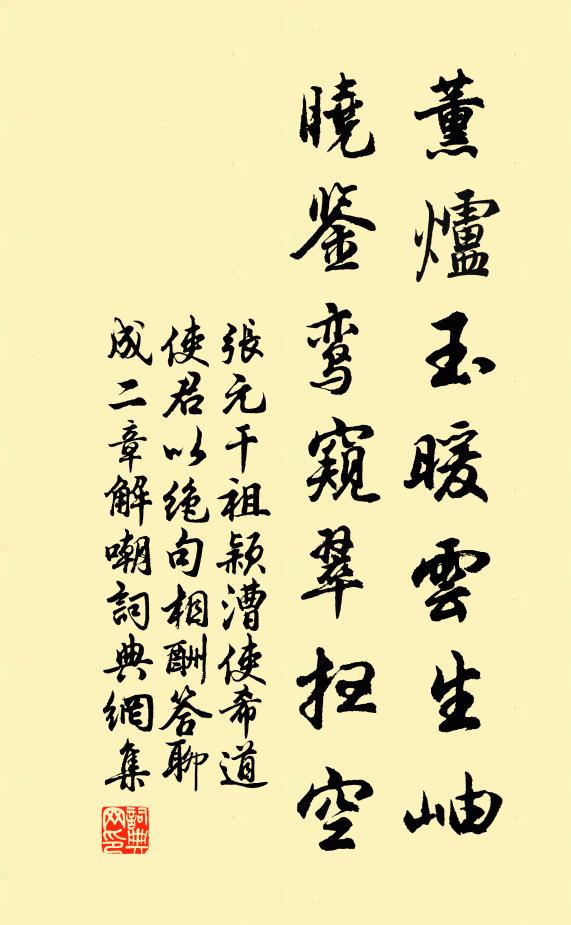 薰爐玉暖雲生岫
曉鉴鸾窺翠扫空
張元干祖颖漕使希道
使君以绝句相酬答聊
成二章解嘲詞典網集
詞典网印